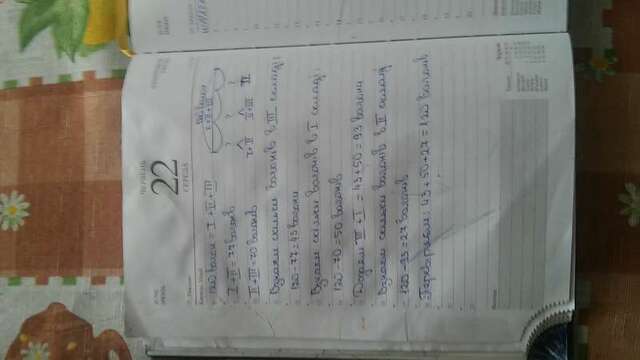 ЧЕРВЕНЬ
22
СЕРЕДА
120 вагон = I + II + III
I + II = 77 вагонів
II + III = 70 вагонів
I + II + III
? ? ?
I + II II + III II
Взнаєм скільки вагонів в III складі:
120 - 77 = 43 вагони
Взнаєм скільки вагонів в I складі:
120 - 70 = 50 вагонів
Додаєм III + I = 43 + 50 = 93 вагони
Взнаєм скільки вагонів в II складі
120 - 93 = 27 вагонів
Перевіряєм: 43 + 50 + 27 = 120 вагонів